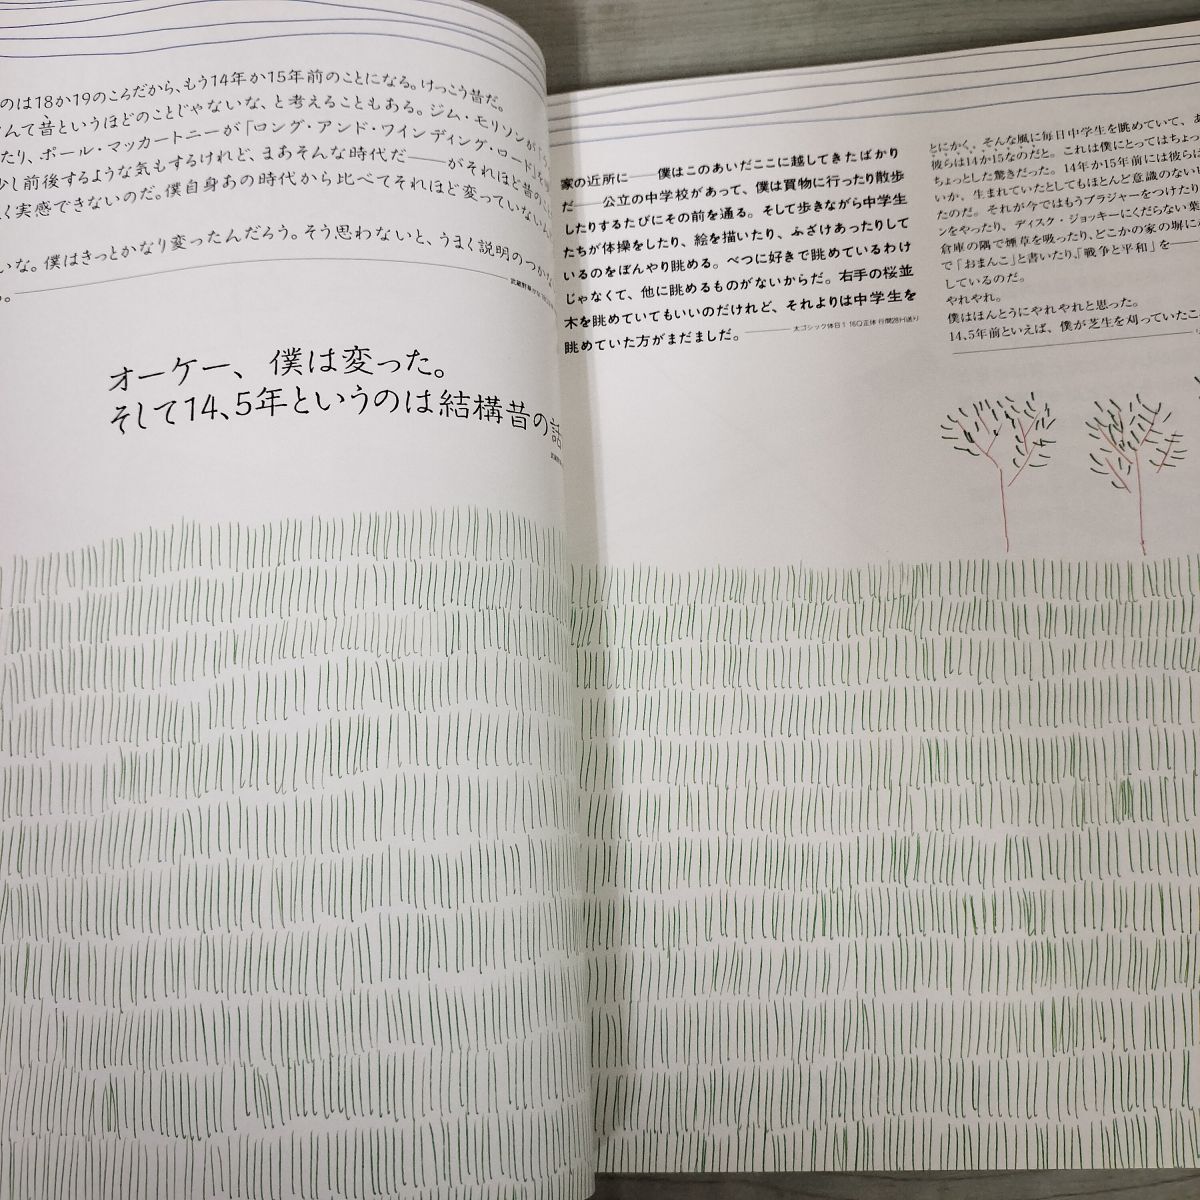 のは18か19のころだから、もう14年か15年前のことになる。けっこう昔だ。
んて昔というほどのことじゃないな、と考えることもある。ジム・モリソンが
たり、ポール・マッカートニーが「ロング・アンド・ワインディング・ロード」を
少し前後するような気もするけれど、まあそんな時代だ——がそれほど昔の
く実感できないのだ。僕自身あの時代から比べてそれほど変っていない
いな。僕はきっとかなり変ったんだろう。そう思わないと、うまく説明のつかな
る。
オーケー、僕は変った。
そして14、5年というのは結構昔の話
家の近所に——僕はこのあいだここに越してきたばかり
だ——公立の中学校があって、僕は買物に行ったり散歩
したりするたびにその前を通る。そして歩きながら中学生
たちが体操をしたり、絵を描いたり、ふざけあったりして
いるのをぼんやり眺める。べつに好きで眺めているわけ
じゃなくて、他に眺めるものがないからだ。右手の桜並
木を眺めていてもいいのだけれど、それよりは中学生を
眺めていた方がまだましだ。
太ゴシック体B1 16Q正体 行間28H(送り)
とにかく、そんな風に毎日中学生を眺めていて、あ
彼らは14か15なのだと。これは僕にとってはちょっ
ちょっとした驚きだった。14年か15年前には彼らは
いか、生まれていたとしてもほとんど意識のない
たのだ。それが今ではもうブラジャーをつけたり
ンをやったり、ディスク・ジョッキーにくだらない葉
倉庫の隅で煙草を吸ったり、どこかの家の塀に
で「おまんこ」と書いたり、「戦争と平和」を——
しているのだ。
やれやれ。
僕はほんとうにやれやれと思った。
14、5年前といえば、僕が芝生を刈っていたこ